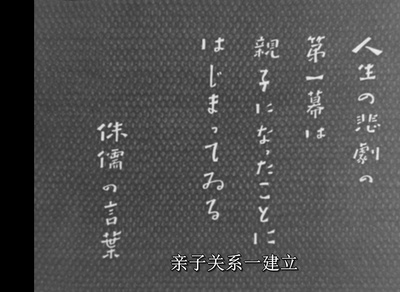 人生の悲劇の
第一幕は
親子になったことに
はじまってゐる
侏儒の言葉
亲子关系一建立